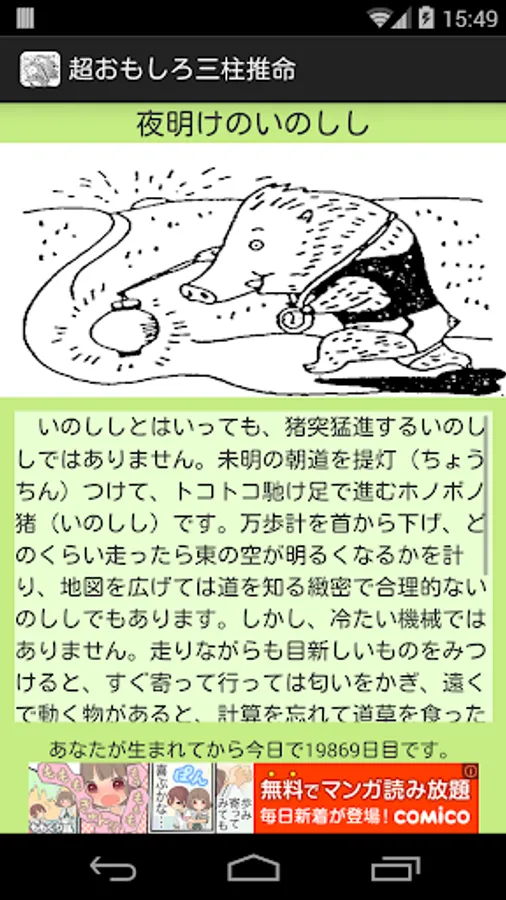 15:49
超おもしろ三柱推命
夜明けのいのしし
　いのししとはいっても、猪突猛進するいのし
しではありません。未明の朝道を提灯（ちょう
ちん）つけて、トコトコ馳け足で進むホノボノ
猪（いのしし）です。万歩計を首から下げ、ど
のくらい走ったら東の空が明るくなるかを計
り、地図を広げては道を知る緻密で合理的ない
のししでもあります。しかし、冷たい機械では
ありません。走りながらも目新しいものをみつ
けると、すぐ寄って行っては匂いをかぎ、遠く
で動く物があると、計算を忘れて道草を食った
あなたが生まれてから今日で19869日目です。
喜ぶかな…
ぽん
歩み
寄って
みても
無料でマンガ読み放題
毎日新着が登場！comico